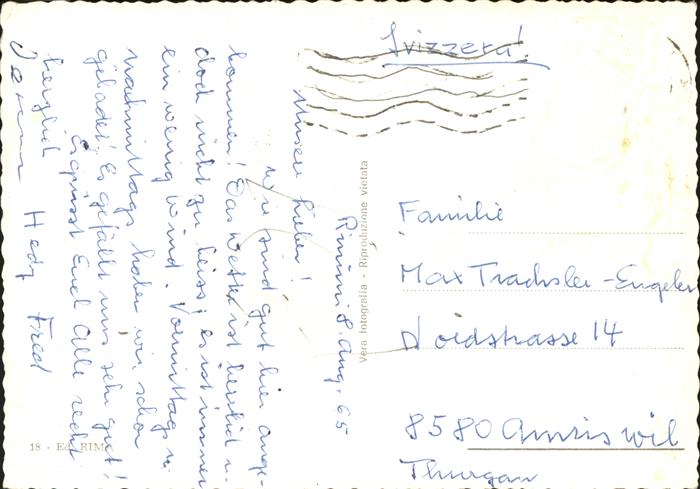 Svizzera!
Rimini 8 Aug. 65
Unsere Lieben!
Wir sind gut hier ange-
kommen! Das Wetter ist herrlich u.
doch nicht zu heiss, es ist immer
ein wenig Wind. Vormittags u.
nachmittags haben wir schon
gebadet! Es gefällt uns sehr gut!
Es grüsst Euch alle recht
herzlich
Hedy Fred
Familie
Max Trachsler-Engeler
Nordstrasse 14
8580 Amriswil
Thurgau
Vera fotografia - Riproduzione vietata
18 - Ed. RIM